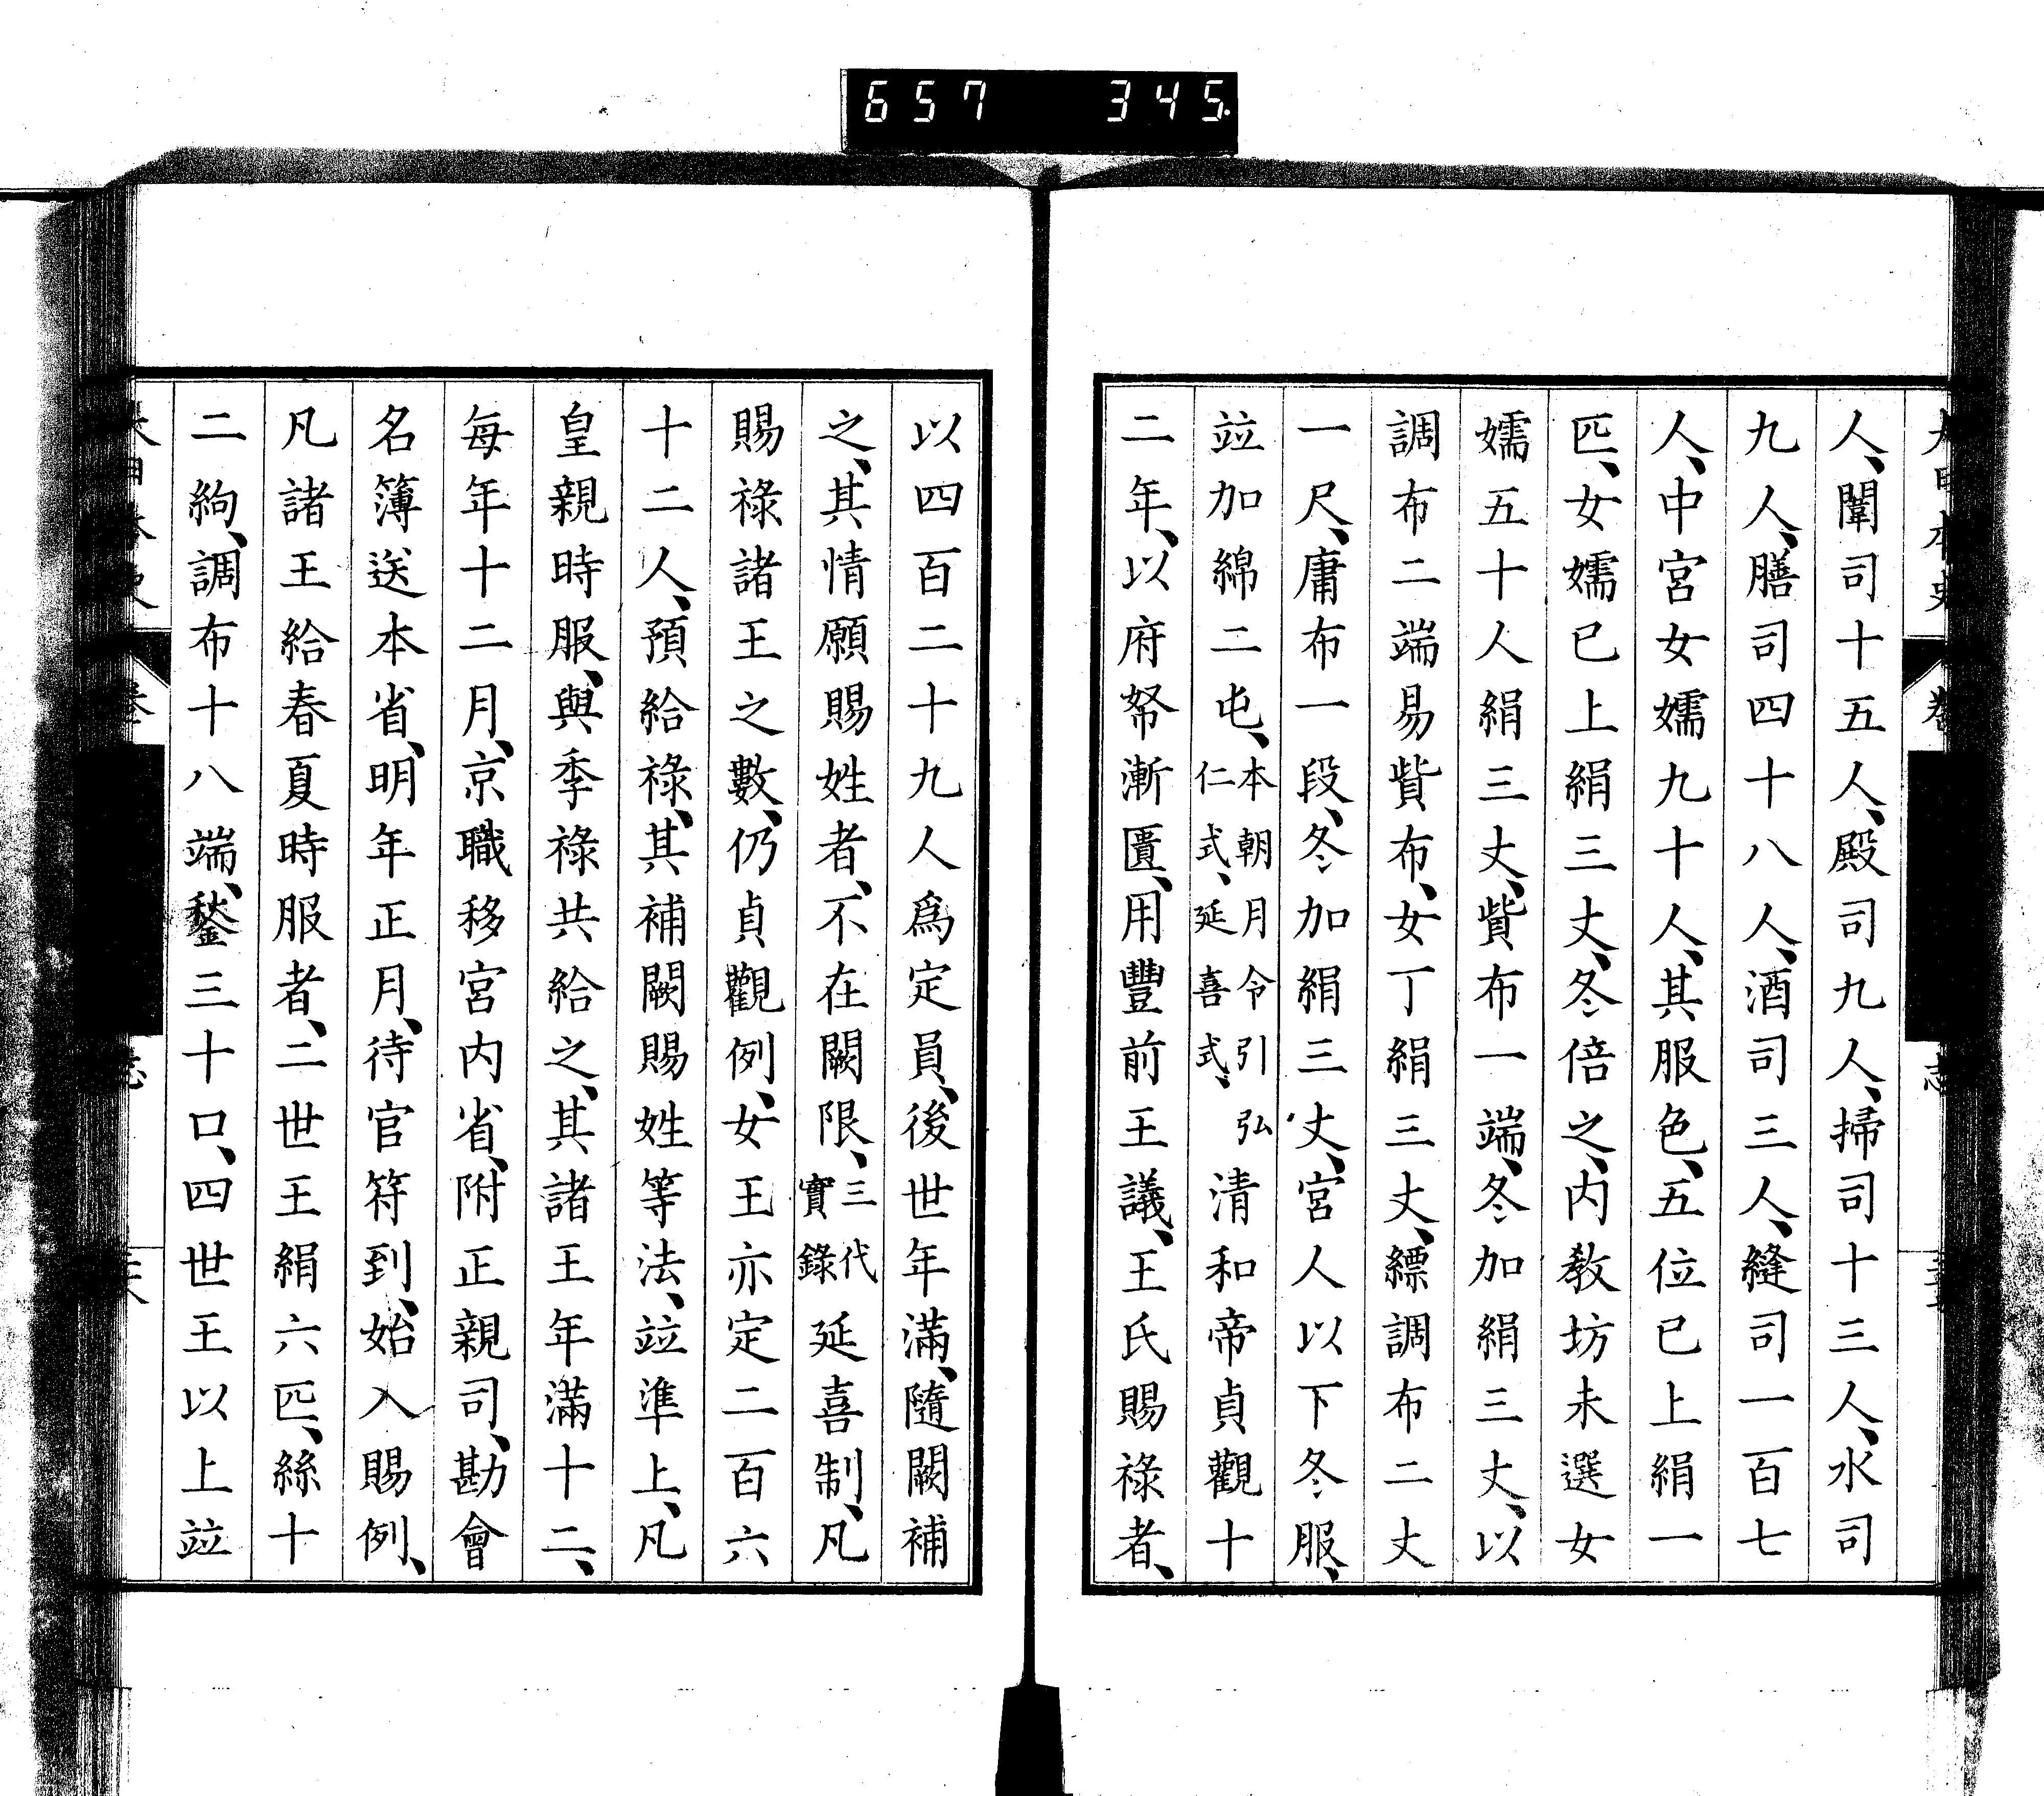 657 345
人、闈司十五人、殿司九人、掃司十三人、水司
九人、膳司四十八人、酒司三人、縫司一百七
人、中宮女孺九十人、其服色、五位已上絹一
匹、女孺已上絹三丈、冬倍之、内敎坊未選女
孺五十人絹三丈、貲布一端、冬加絹三丈、以
調布二端易貲布、女丁絹三丈、縹調布二丈
一尺、庸布一段、冬加絹三丈、宮人以下冬服、
竝加綿二屯、本朝月令引弘仁式、延喜式、清和帝貞觀十
二年、以府帑漸匱、用豐前王議、王氏賜祿者、
以四百二十九人爲定員、後世年滿、隨闕補
之、其情願賜姓者、不在闕限、三代實錄延喜制、凡
賜祿諸王之數、仍貞觀例、女王亦定二百六
十二人、預給祿、其補闕賜姓等法、竝準上、凡
皇親時服、與季祿共給之、其諸王年滿十二、
每年十二月、京職移宮内省、附正親司、勘會
名簿送本省、明年正月、待官符到、始入賜例、
凡諸王給春夏時服者、二世王絹六匹、絲十
二絇、調布十八端、鍫三十口、四世王以上竝